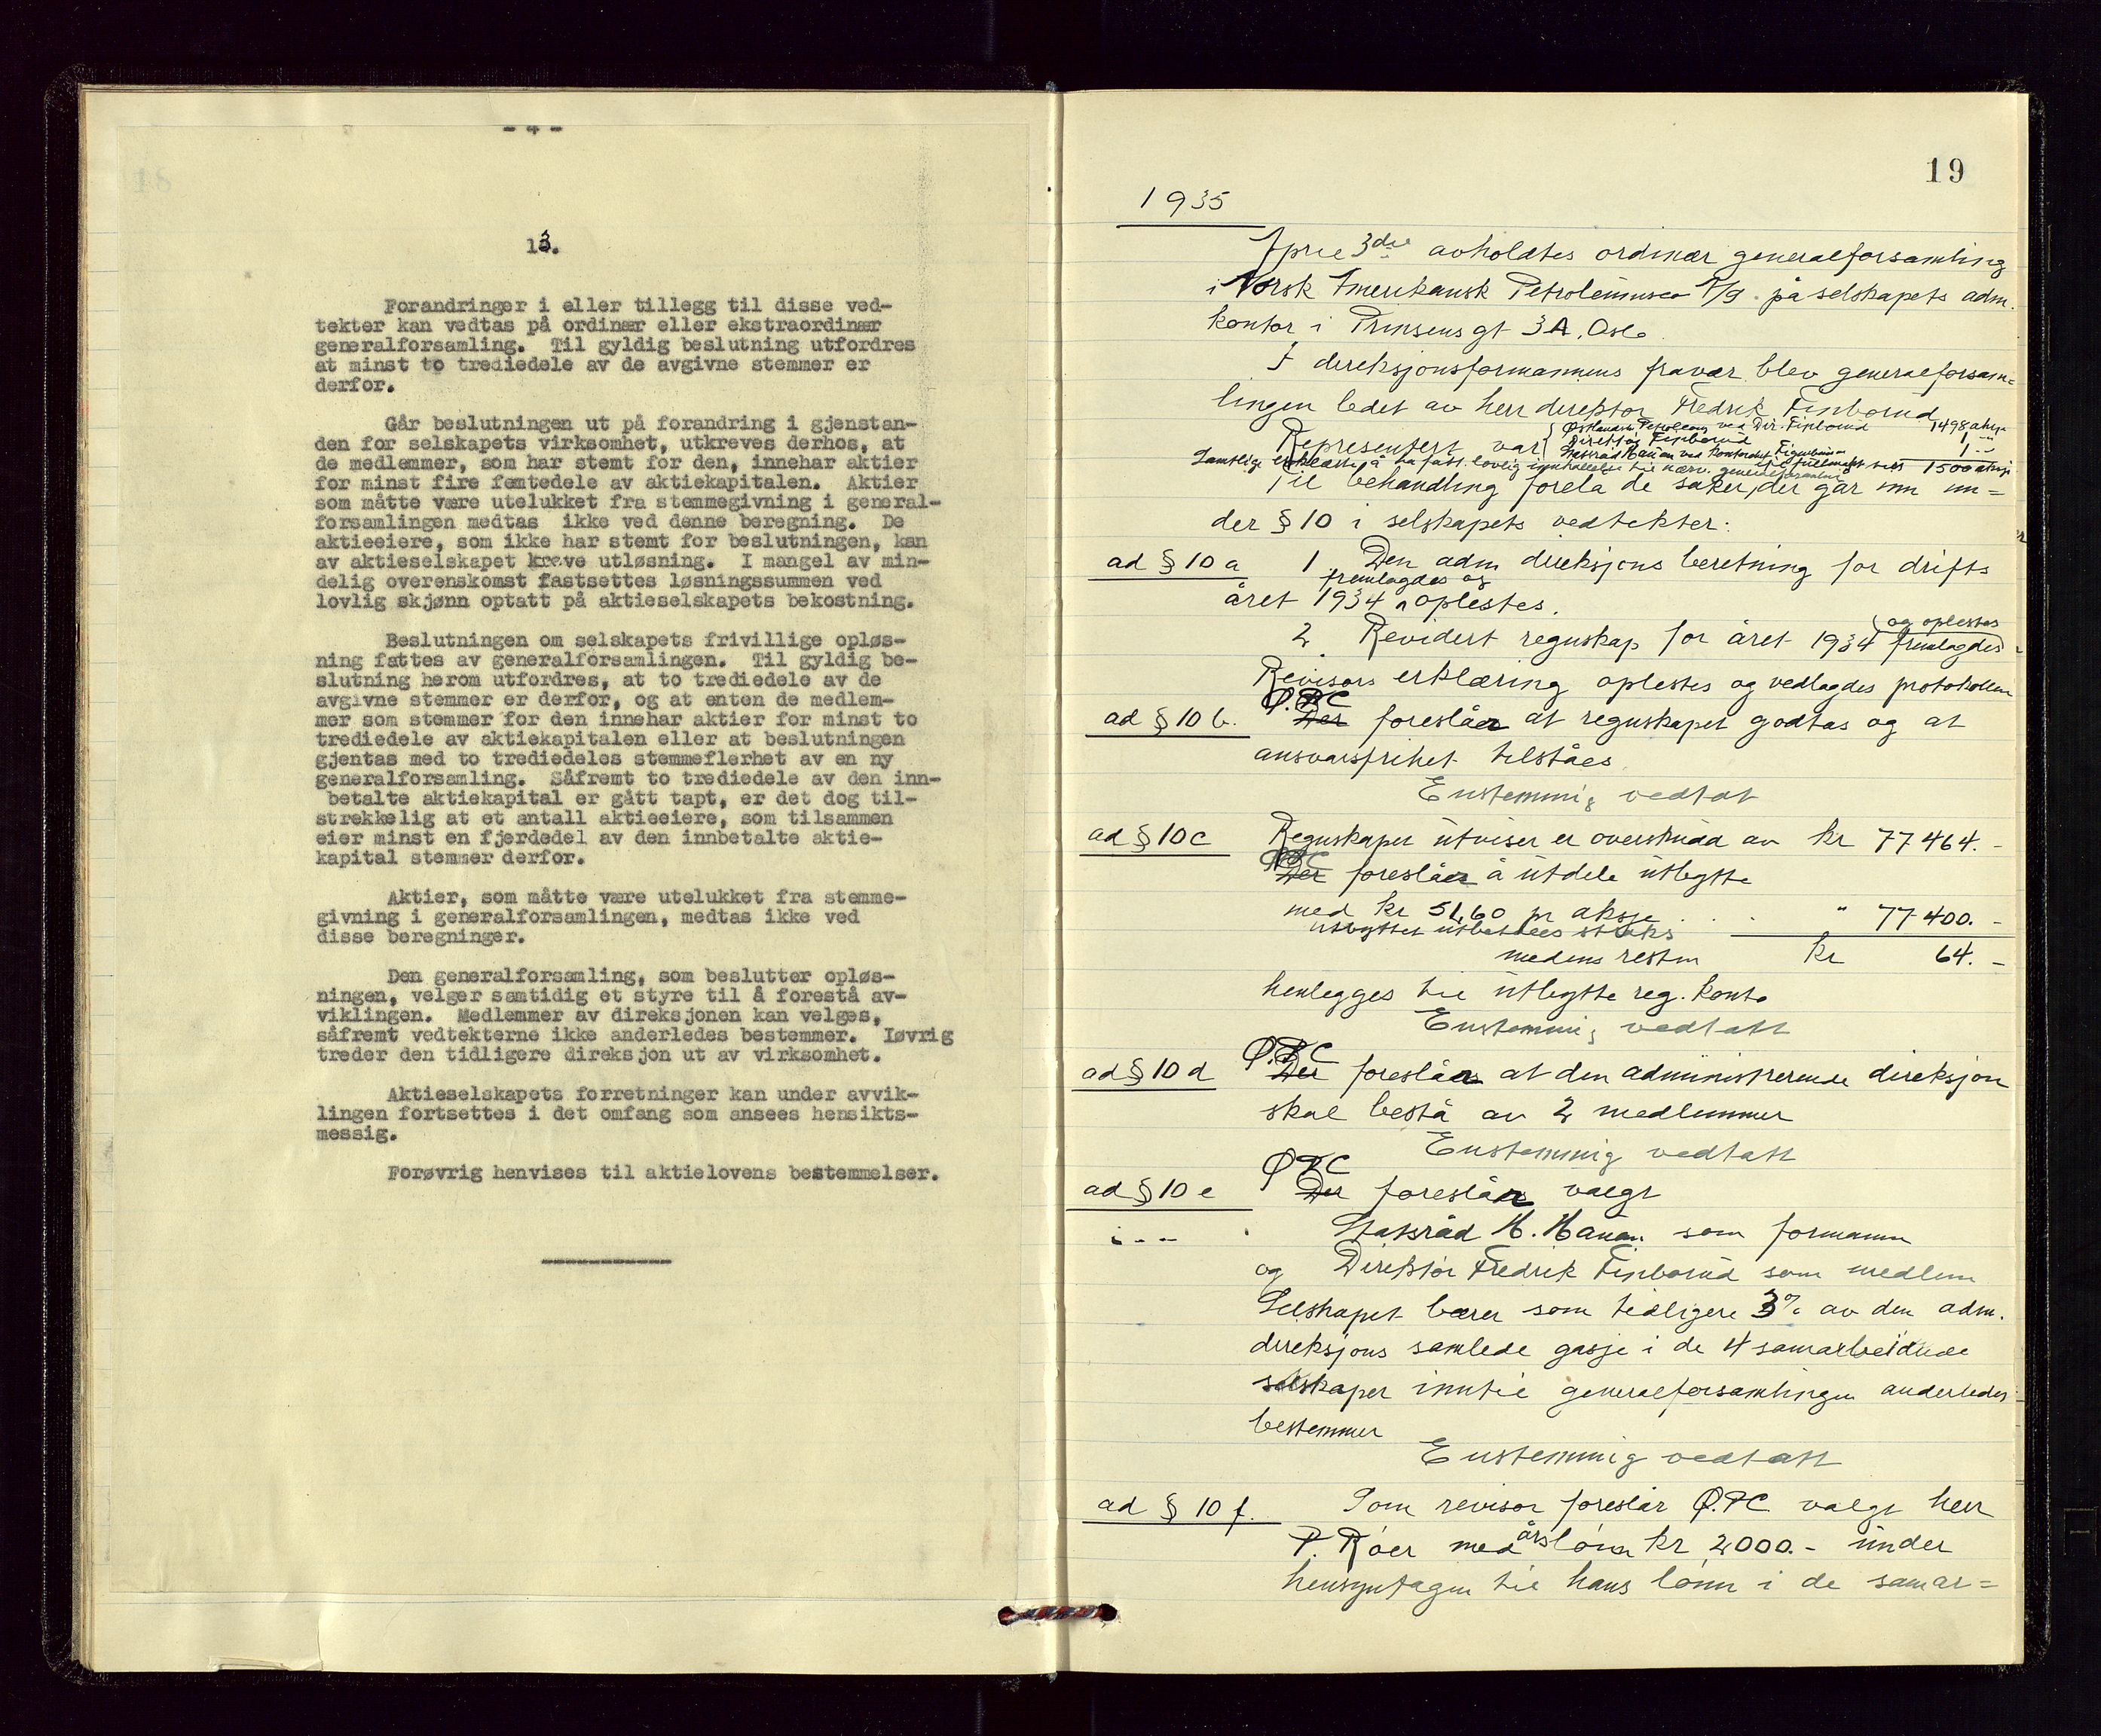 - 4 -
13.
Forandringer i eller tillegg til disse ved-
tekter kan vedtas på ordinær eller ekstraordinær
generalforsamling. Til gyldig beslutning utfordres
at minst to trediedele av de avgivne stemmer er
derfor.
Går beslutningen ut på forandring i gjenstan-
den for selskapets virksomhet, utkreves derhos, at
de medlemmer, som har stemt for den, innehar aktier
for minst fire femtedele av aktiekapitalen. Aktier
som måtte være utelukket fra stemmegivning i general-
forsamlingen medtas ikke ved denne beregning. De
aktieeiere, som ikke har stemt for beslutningen, kan
av aktieselskapet kreve utløsning. I mangel av min-
delig overenskomst fastsettes løsningssummen ved
lovlig skjønn optatt på aktieselskapets bekostning.
Beslutningen om selskapets frivillige opløs-
ning fattes av generalforsamlingen. Til gyldig be-
slutning herom utfordres, at to trediedele av de
avgivne stemmer er derfor, og at enten de medlem-
mer som stemmer for den innehar aktier for minst to
trediedele av aktiekapitalen eller at beslutningen
gjentas med to trediedeles stemmeflerhet av en ny
generalforsamling. Såfremt to trediedele av den inn-
betalte aktiekapital er gått tapt, er det dog til-
strekkelig at et antall aktieeiere, som tilsammen
eier minst en fjerdedel av den innbetalte aktie-
kapital stemmer derfor.
Aktier, som måtte være utelukket fra stemme-
givning i generalforsamlingen, medtas ikke ved
disse beregninger.
Den generalforsamling, som beslutter opløs-
ningen, velger samtidig et styre til å forestå av-
viklingen. Medlemmer av direksjonen kan velges,
såfremt vedtekterne ikke anderledes bestemmer. Iøvrig
treder den tidligere direksjon ut av virksomhet.
Aktieselskapets forretninger kan under avvik-
lingen fortsettes i det omfang som ansees hensikts-
messig.
Forøvrig henvises til aktielovens bestemmelser.
19
1935
April 3die avholdtes ordinær generalforsamling
i Norsk Amerikansk Petroleumsco A/S. på selskapets adm.
kontor i Prinsens gt 3A. Oslo
I direksjonsformannens fravær blev generalforsam=
lingen ledet av herr direktør Fredrik Finborud
Representert var Østlandske Petroleum ved Dir. Finborud 1498 aksjer
Direktør Finborud 1 -"-
Statsråd Hauan ved 1 -"-
Samtlige erklærte å ha fått lovlig innkallelse til nærv. generalforsamling 1500 aksjer
Til behandling forelå de saker, der går inn un=
der § 10 i selskapets vedtekter:
ad § 10 a 1. Den adm direksjons beretning for drifts
året 1934 fremlagdes og oplestes.
2. Revidert regnskap for året 1934 fremlagdes og oplestes
Revisors erklæring oplestes og vedlagdes protokollen
ad § 10 b. Ø.P.C Der foreslåes at regnskapet godtas og at
ansvarsfrihet tilståes
Enstemmig vedtat
ad § 10 c Regnskapet utviser et overskudd av kr 77464.-
Ø.P.C Der foreslår å utdele utbytte
med kr 51,60 pr aksje . . . " 77400.-
utbyttet utbetales straks
medens resten kr 64.-
henlegges til utbytte reg. konto
Enstemmig vedtatt
ad § 10 d Ø.P.C Der foreslår at den administrerende direksjon
skal bestå av 2 medlemmer
Enstemmig vedtatt
ad § 10 e Ø.P.C Der foreslår valgt
Statsråd H. Hauan som formann
og Direktør Fredrik Finborud som medlem
Selskapet bærer som tidligere 3% av den adm.
direksjons samlede gasje i de 4 samarbeidende
selskaper inntil generalforsamlingen anderledes
bestemmer
Enstemmig vedtatt
ad § 10 f. Som revisor foreslår Ø.P.C valgt herr
P. Róer med årslønn kr 2000.- under
hensyntagen til hans lønn i de samar=